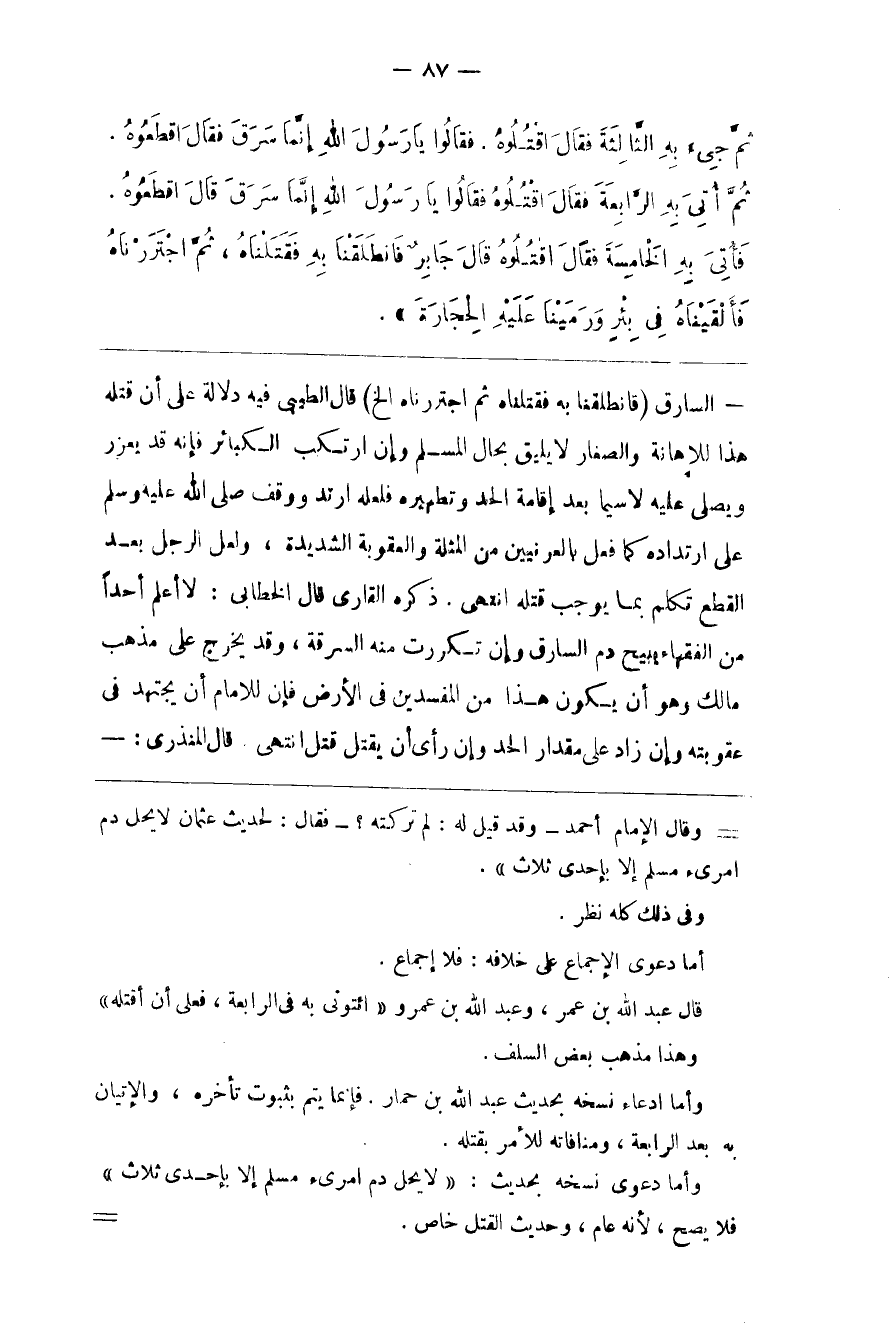 — ٨٧ —
ثُمَّ جِىءَ بِهِ الثَّالِثَةَ فَقَالَ اقْتُلُوهُ . فَقَالُوا يَا رَسُولَ اللهِ إِنَّمَا سَرَقَ فَقَالَ اقْطَعُوهُ .
ثُمَّ أُتِىَ بِهِ الرَّابِعَةَ فَقَالَ اقْتُلُوهُ فَقَالُوا يَا رَسُولَ اللهِ إِنَّمَا سَرَقَ قَالَ اقْطَعُوهُ .
فَأُتِىَ بِهِ الْخَامِسَةَ فَقَالَ اقْتُلُوهُ قَالَ جَابِرٌ فَانْطَلَقْنَا بِهِ فَقَتَلْنَاهُ ، ثُمَّ اجْتَرَرْنَاهُ
فَأَلْقَيْنَاهُ فِى بِئْرٍ وَرَمَيْنَا عَلَيْهِ الْحِجَارَةَ » .
— السارق (فانطلقنا به فقتلناه ثم اجتررناه الخ) قال الطيبى فيه دلالة على أن قتله
هذا للإهانة والصغار لا يليق بحال المسلم وإن ارتكب الكبائر فإنه قد يعزر
ويصلى عليه لاسيما بعد إقامة الحد وتطهيره فلعله ارتد ووقف صلى الله عليه وسلم
على ارتداده كما فعل بالعرنيين من المثلة والعقوبة الشديدة ، ولعل الرجل بعد
القطع تكلم بما يوجب قتله انتهى . ذكره القارى قال الخطابى : لا أعلم أحداً
من الفقهاء يبيح دم السارق وإن تكررت منه السرقة ، وقد يخرج على مذهب
مالك وهو أن يكون هذا من المفسدين فى الأرض فإن للامام أن يجتهد فى
عقوبته وإن زاد على مقدار الحد وإن رأى أن يقتل قتل انتهى . قال المنذرى : —
= وقال الإمام أحمد – وقد قيل له : لم تركته ؟ – فقال : لحديث عثمان لا يحل دم
امرىء مسلم إلا بإحدى ثلاث » .
وفى ذلك كله نظر .
أما دعوى الإجماع على خلافه : فلا إجماع .
قال عبد الله بن عمر ، وعبد الله بن عمرو « ائتونى به فى الرابعة ، فعلى أن أقتله»
وهذا مذهب بعض السلف .
وأما ادعاء نسخه بحديث عبد الله بن حمار . فإنما يتم بثبوت تأخره ، والإتيان
به بعد الرابعة ، ومنافاته للأمر بقتله .
وأما دعوى نسخه بحديث : « لا يحل دم امرىء مسلم إلا بإحدى ثلاث »
فلا يصح ، لأنه عام ، وحديث القتل خاص . =